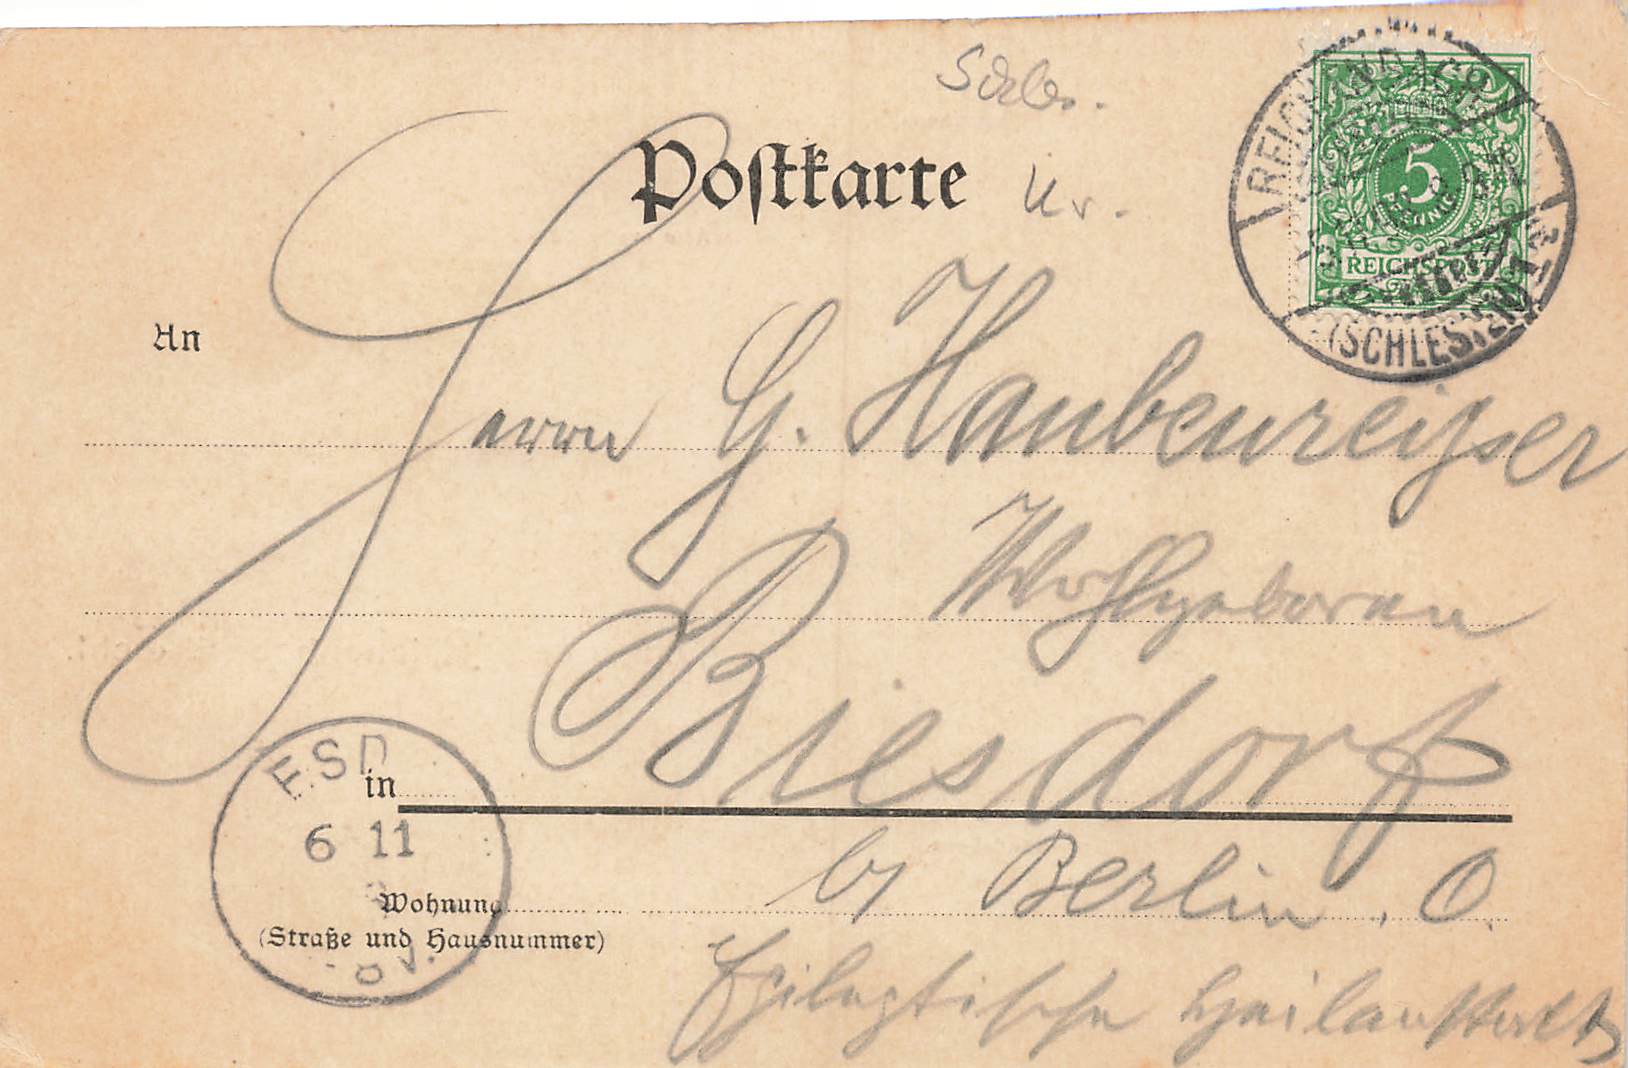 Schles.
Postkarte Kr.
REICHENBACH
5
PFENNIG
REICHSPOST
(SCHLES.)
An
Herrn G. Haubenreißer
Wohlgeboren
in Biesdorf
b/ Berlin. O.
Epileptische Heilanstalt
Wohnung
(Straße und Hausnummer)
ESD
6 11